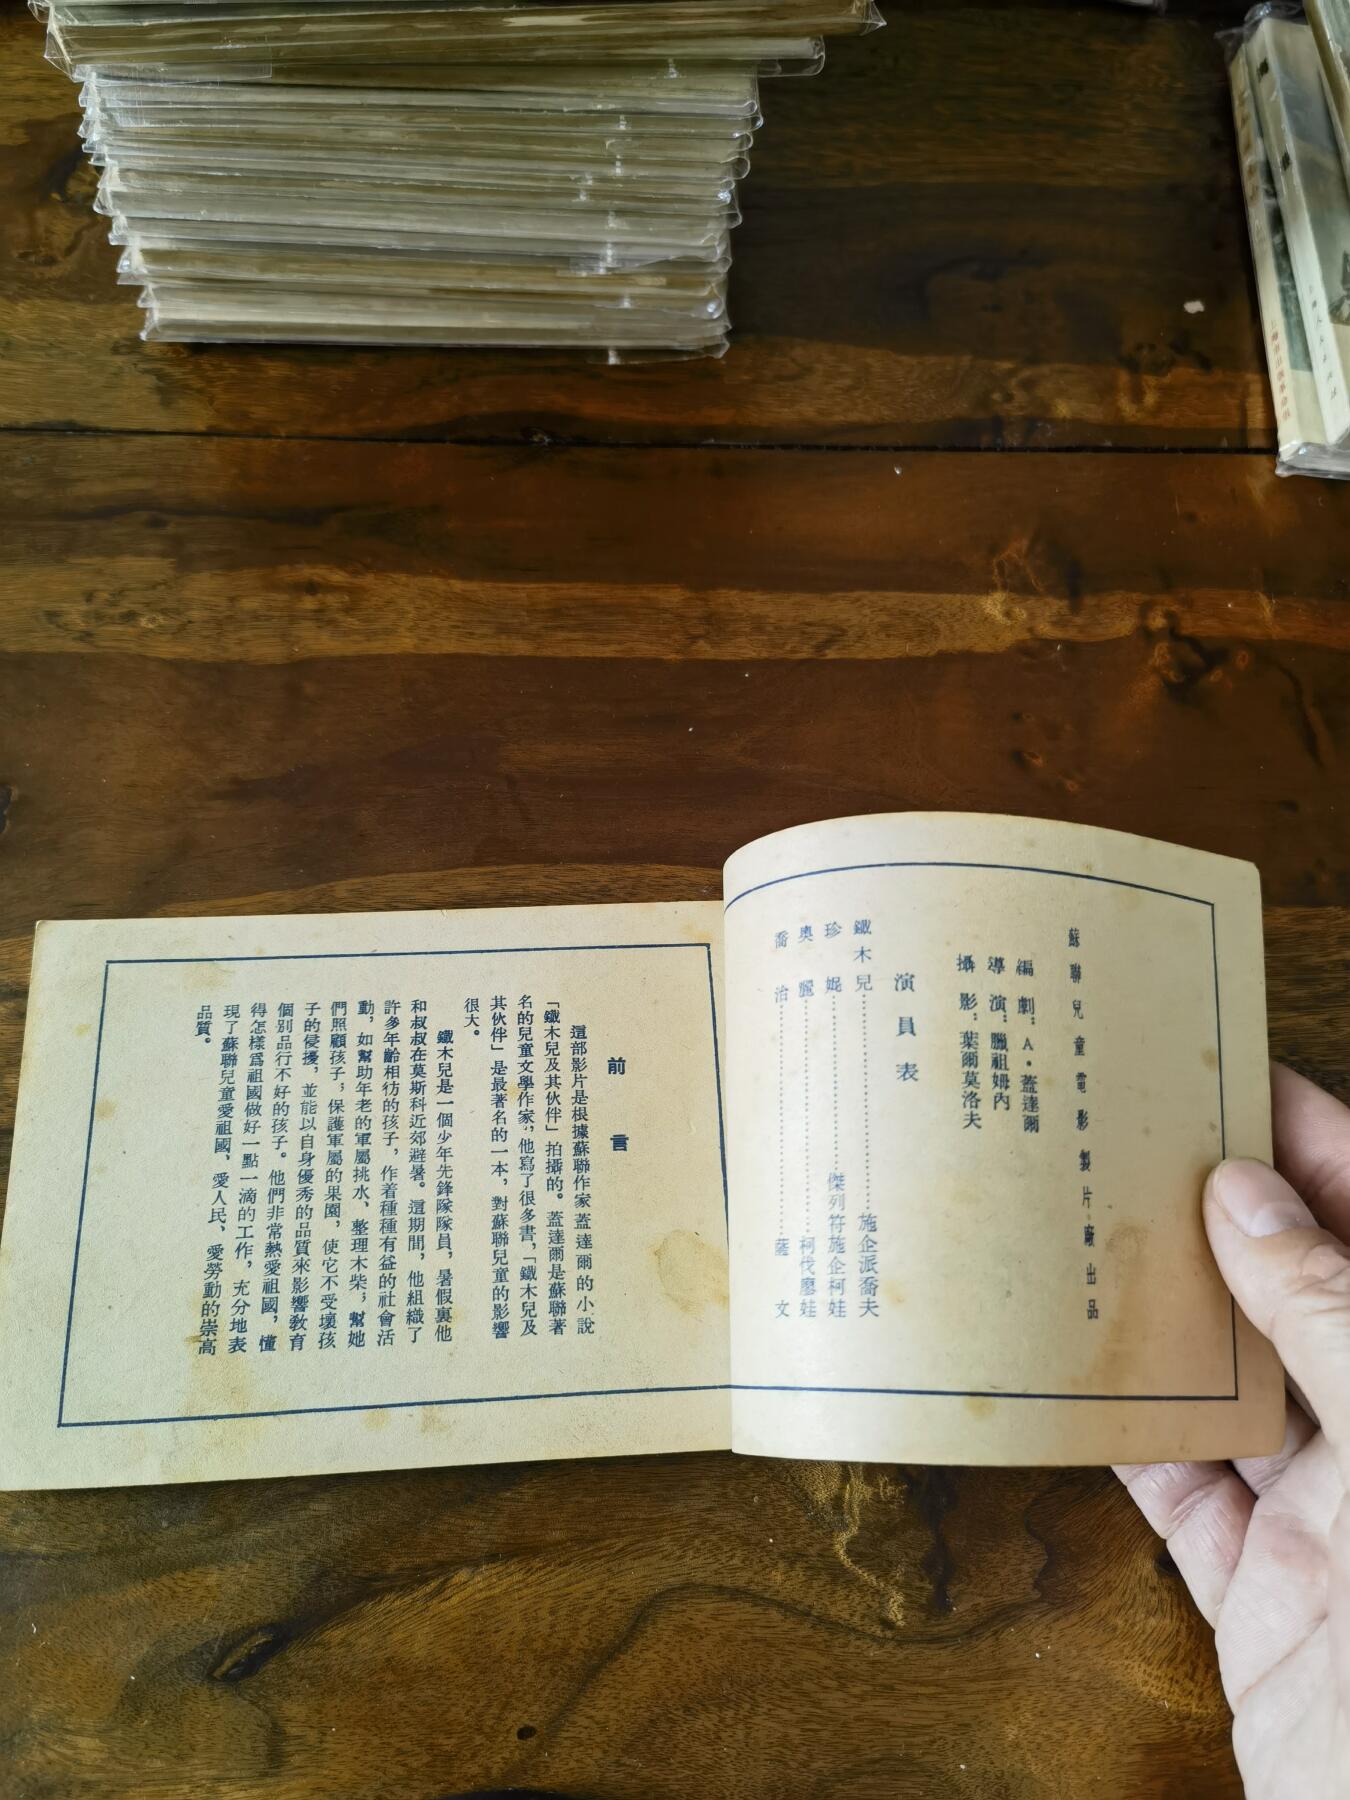 蘇聯兒童電影製片廠出品
編劇：A・蓋達爾
導演：臘祖姆內
攝影：葉爾莫洛夫
演員表
鐵木兒……施企派喬夫
珍妮……傑列符施企柯娃
奧麗……柯伐廖娃
喬治……薩文
前言
這部影片是根據蘇聯作家蓋達爾的小說
「鐵木兒及其伙伴」拍攝的。蓋達爾是蘇聯著
名的兒童文學作家，他寫了很多書，「鐵木兒及
其伙伴」是最著名的一本，對蘇聯兒童的影響
很大。
鐵木兒是一個少年先鋒隊隊員，暑假裏他
和叔叔在莫斯科近郊避暑。這期間，他組織了
許多年齡相彷的孩子，作着種種有益的社會活
動，如幫助年老的軍屬挑水、整理木柴；幫她
們照顧孩子；保護軍屬的果園，使它不受壞孩
子的侵擾，並能以自身優秀的品質來影響教育
個別品行不好的孩子。他們非常熱愛祖國，懂
得怎樣爲祖國做好一點一滴的工作，充分地表
現了蘇聯兒童愛祖國、愛人民、愛勞動的崇高
品質。